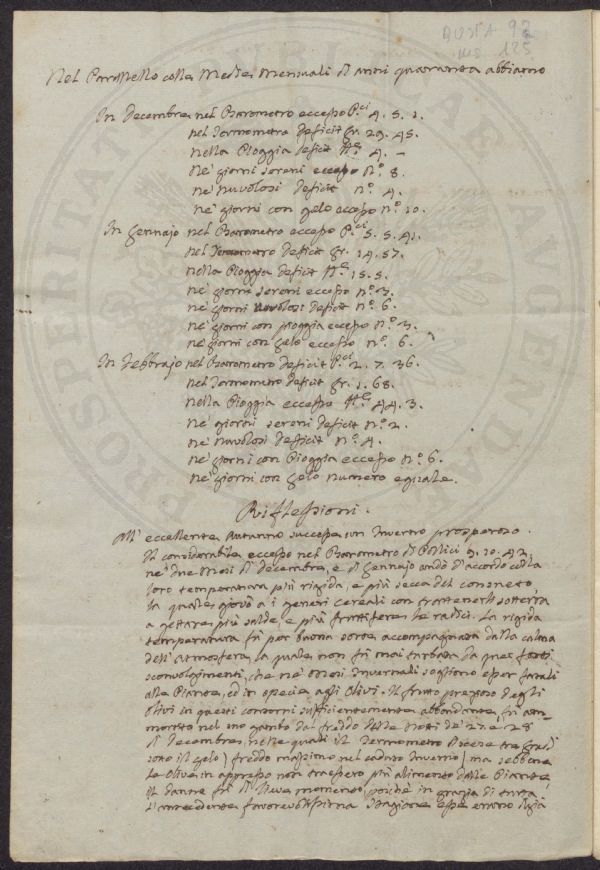 BUSTA 92
ms 125
Nel Parallello colla Media Mensuali di anni quaranta abbiamo
In Decembre nel Barometro eccesso P.ci 4. 5. 1.
nel Termometro deficit gr. 29. 45.
nella Pioggia deficit 4. –
Ne' giorni sereni eccesso N.º 8.
ne' nuvolosi deficit n.º 4.
ne' giorni con gelo eccesso n.º 10.
In Gennajo nel Barometro eccesso P.ci 5. 5. 41.
nel Termometro deficit gr. 14. 57.
nella Pioggia deficit 15. 5.
ne' giorni sereni eccesso n.º 3.
ne' giorni nuvolosi deficit n.º 6.
ne' giorni con pioggia eccesso n.º 3.
ne' giorni con gelo eccesso n.º 6.
In Febbrajo nel Barometro deficit P.ci 2. 7. 36.
nel Termometro deficit gr. 1. 68.
nella Pioggia eccesso 44. 3.
ne' giorni sereni deficit n.º 2.
ne' nuvolosi deficit n.º 4.
ne' giorni con Pioggia eccesso n.º 6.
ne' giorni con gelo numero eguale.
Riflessioni.
All' eccellente Autunno successe un Inverno prosperoso.
Il considerabile eccesso nel Barometro di Pollici 9. 10. 42.
ne' due Mesi di Decembre, e di Gennajo andò d'accordo colla
loro temperatura più rigida, e più secca del consueto,
la quale giovò a i generi cereali con trattenerli sotterra
a gettare più salde, e più fruttifere le radici. La rigida
temperatura fù per buona sorte accompagnata dalla calma
dell' Atmosfera la quale non fù mai turbata da que' forti
sconvolgimenti, che ne' Mesi Invernali sogliono esser fatali
alle Piante, ed in specie agli Olivi. Il frutto prezioso degli
Olivi in questi contorni sufficientemente abbondante, fù am-
mortito nel suo gambo dal freddo delle Notti de' 27. e 28
di Decembre, nelle quali il Termometro scese tre gradi
sotto il gelo (freddo massimo nel caduto Inverno) ma sebbene
le Olive in appresso non traessero più alimento dalle Piante
il danno fù di lieve momento, poichè in grazia di tutta
l'antecedente favorevolissima Stagione esse erano di già